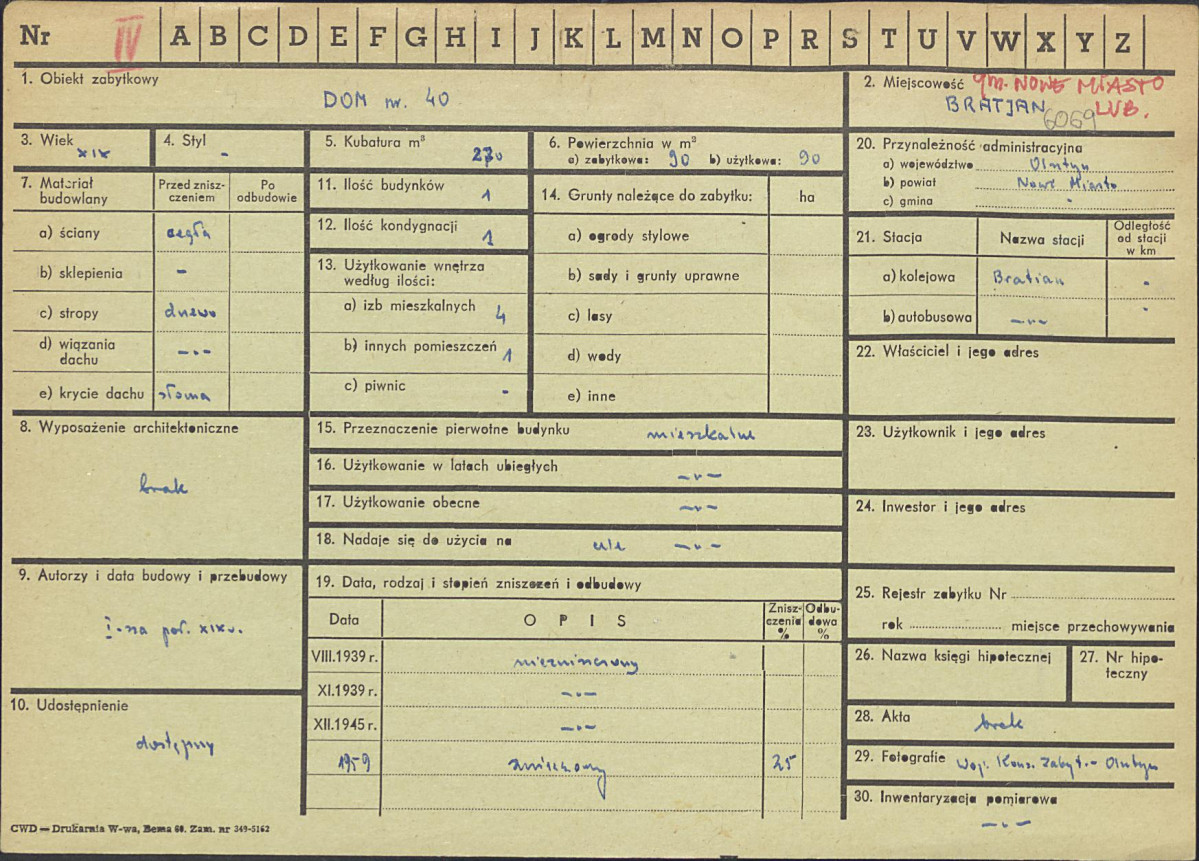 Nr IV A B C D E F G H I J K L M N O P R S T U V W X Y Z
1. Obiekt zabytkowy
DOM nr. 40
2. Miejscowość gm. NOWE MIASTO
BRATJAN LUB.
6069
3. Wiek
XIX
4. Styl
-
5. Kubatura m³
270
6. Powierzchnia w m²
a) zabytkowa: 90 b) użytkowa: 90
7. Materiał budowlany
Przed znisz-
czeniem
Po
odbudowie
a) ściany cegła
b) sklepienia -
c) stropy drewn
d) wiązania
dachu -"-
e) krycie dachu słoma
8. Wyposażenie architektoniczne
brak
9. Autorzy i data budowy i przebudowy
I-sza poł. XIX w.
10. Udostępnienie
dostępny
11. Ilość budynków
1
12. Ilość kondygnacji
1
13. Użytkowanie wnętrza
według ilości:
a) izb mieszkalnych 4
b) innych pomieszczeń 1
c) piwnic -
14. Grunty należące do zabytku: ha
a) ogrody stylowe
b) sady i grunty uprawne
c) lasy
d) wody
e) inne
15. Przeznaczenie pierwotne budynku mieszkalne
16. Użytkowanie w latach ubiegłych -"-
17. Użytkowanie obecne -"-
18. Nadaje się do użycia na cele -"-
19. Data, rodzaj i stopień zniszczeń i odbudowy
Data
O P I S
Znisz-
czenia
%
Odbu-
dowa
%
VIII.1939 r. niezniszczony
XI.1939 r. -"-
XII.1945 r. -"-
1959 zniszczony 25
20. Przynależność administracyjna
a) województwo Olsztyn
b) powiat Nowe Miasto
c) gmina -
21. Stacja
Nazwa stacji
Odległość
od stacji
w km
a) kolejowa Bratian -
b) autobusowa -"- -
22. Właściciel i jego adres
23. Użytkownik i jego adres
24. Inwestor i jego adres
25. Rejestr zabytku Nr
rok miejsce przechowywania
26. Nazwa księgi hipotecznej
27. Nr hipo-
teczny
28. Akta brak
29. Fotografie Woj. Kons. Zabyt. - Olsztyn
30. Inwentaryzacja pomiarowa
-"-
CWD — Drukarnia W-wa, Bema 60. Zam. nr 349-5162